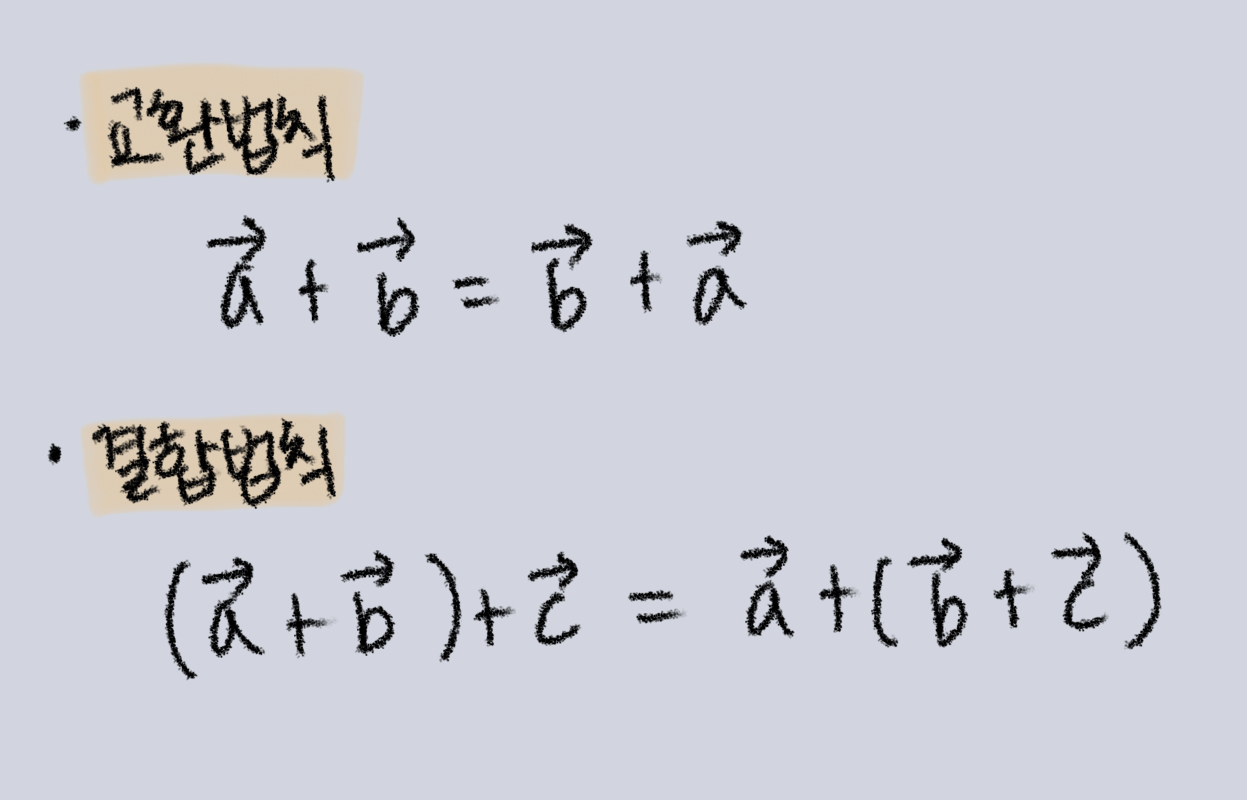 · 교환법칙
$\vec{a} + \vec{b} = \vec{b} + \vec{a}$
· 결합법칙
$(\vec{a} + \vec{b}) + \vec{c} = \vec{a} + (\vec{b} + \vec{c})$